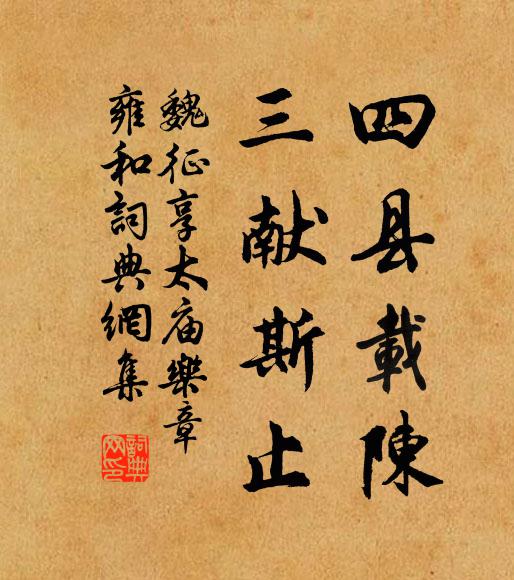 四县載陳
三献斯止
魏征享太庙樂章
雍和詞典網集
詞典网印